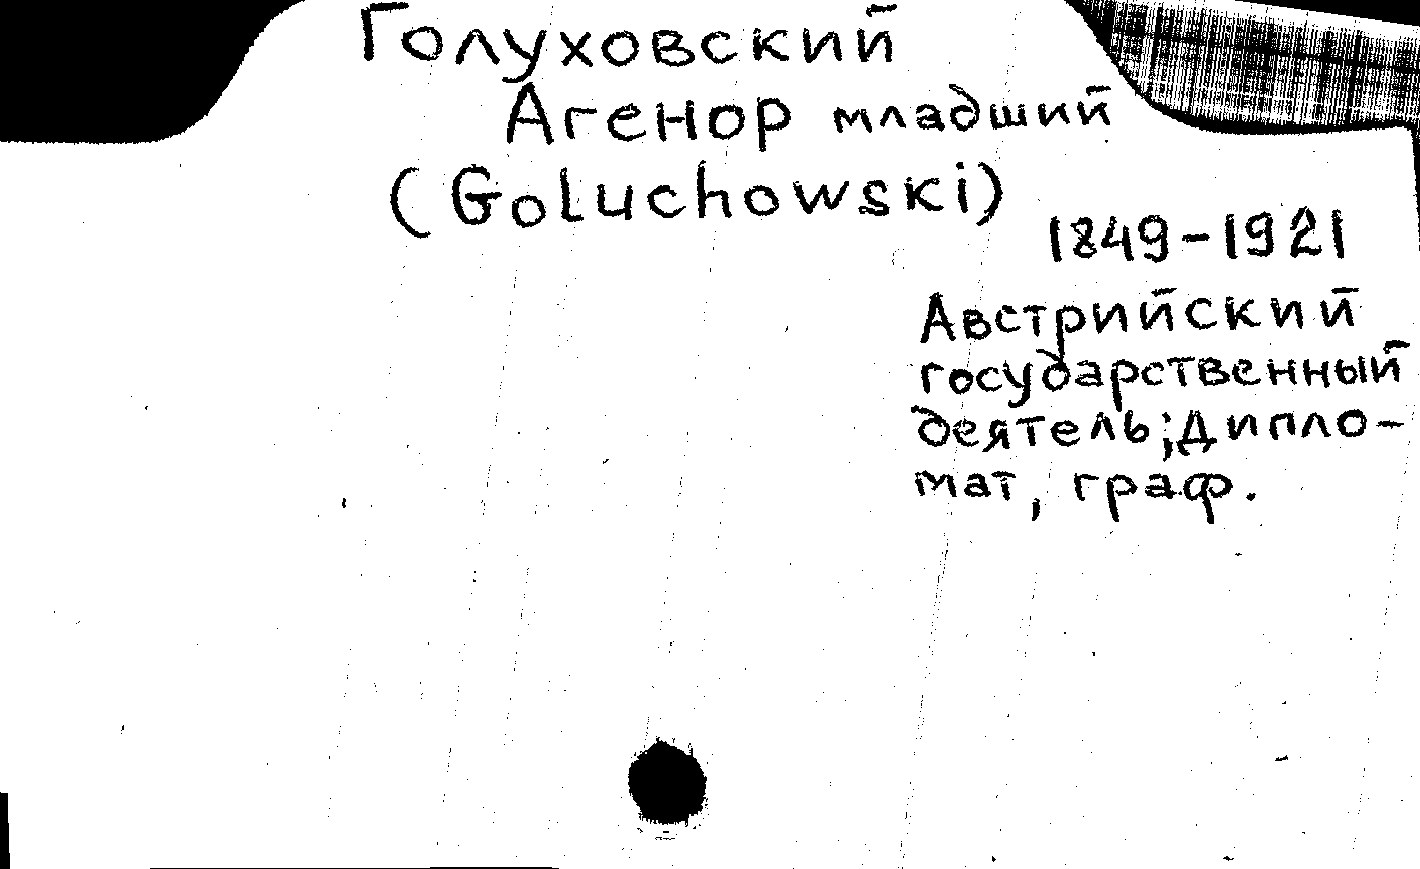 Голуховский
Агенор младший
(Goluchowski)
1849-1921
Австрийский
государственный
деятель; дипло-
мат, граф.